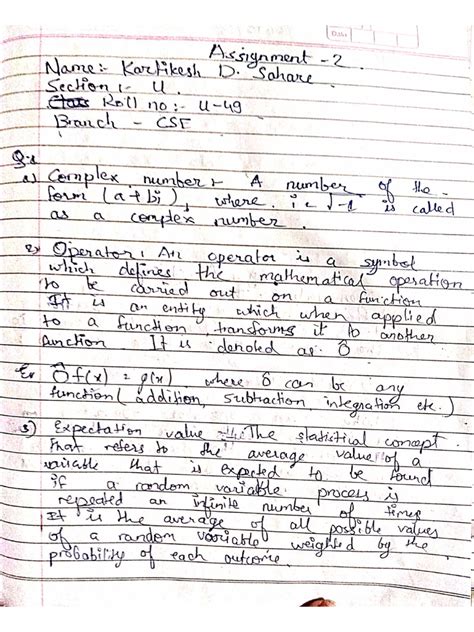 Date
Assignment - 2
Name:- Kartikesh D. Sahare
Section:- U.
Roll no:- U-49
Branch - CSE
Q.1
a) Complex number:- A number of the
form (a+bi), where i = √-1 is called
as a complex number.
2) Operator: An operator is a symbol
which defines the mathematical operation
to be carried out on a function
It is an entity which when applied
to a function transforms it to another
function It is denoted as Ô
Ex Ô f(x) = g(x) where ô can be any
function( addition, subtraction integration etc.)
3) Expectation value -: The statistical concept
that refers to the average value of a
variable that is expected to be found
if a random variable process is
repeated an infinite number of times
It is the average of all possible values
of a random variable weighted by the
probability of each outcome.